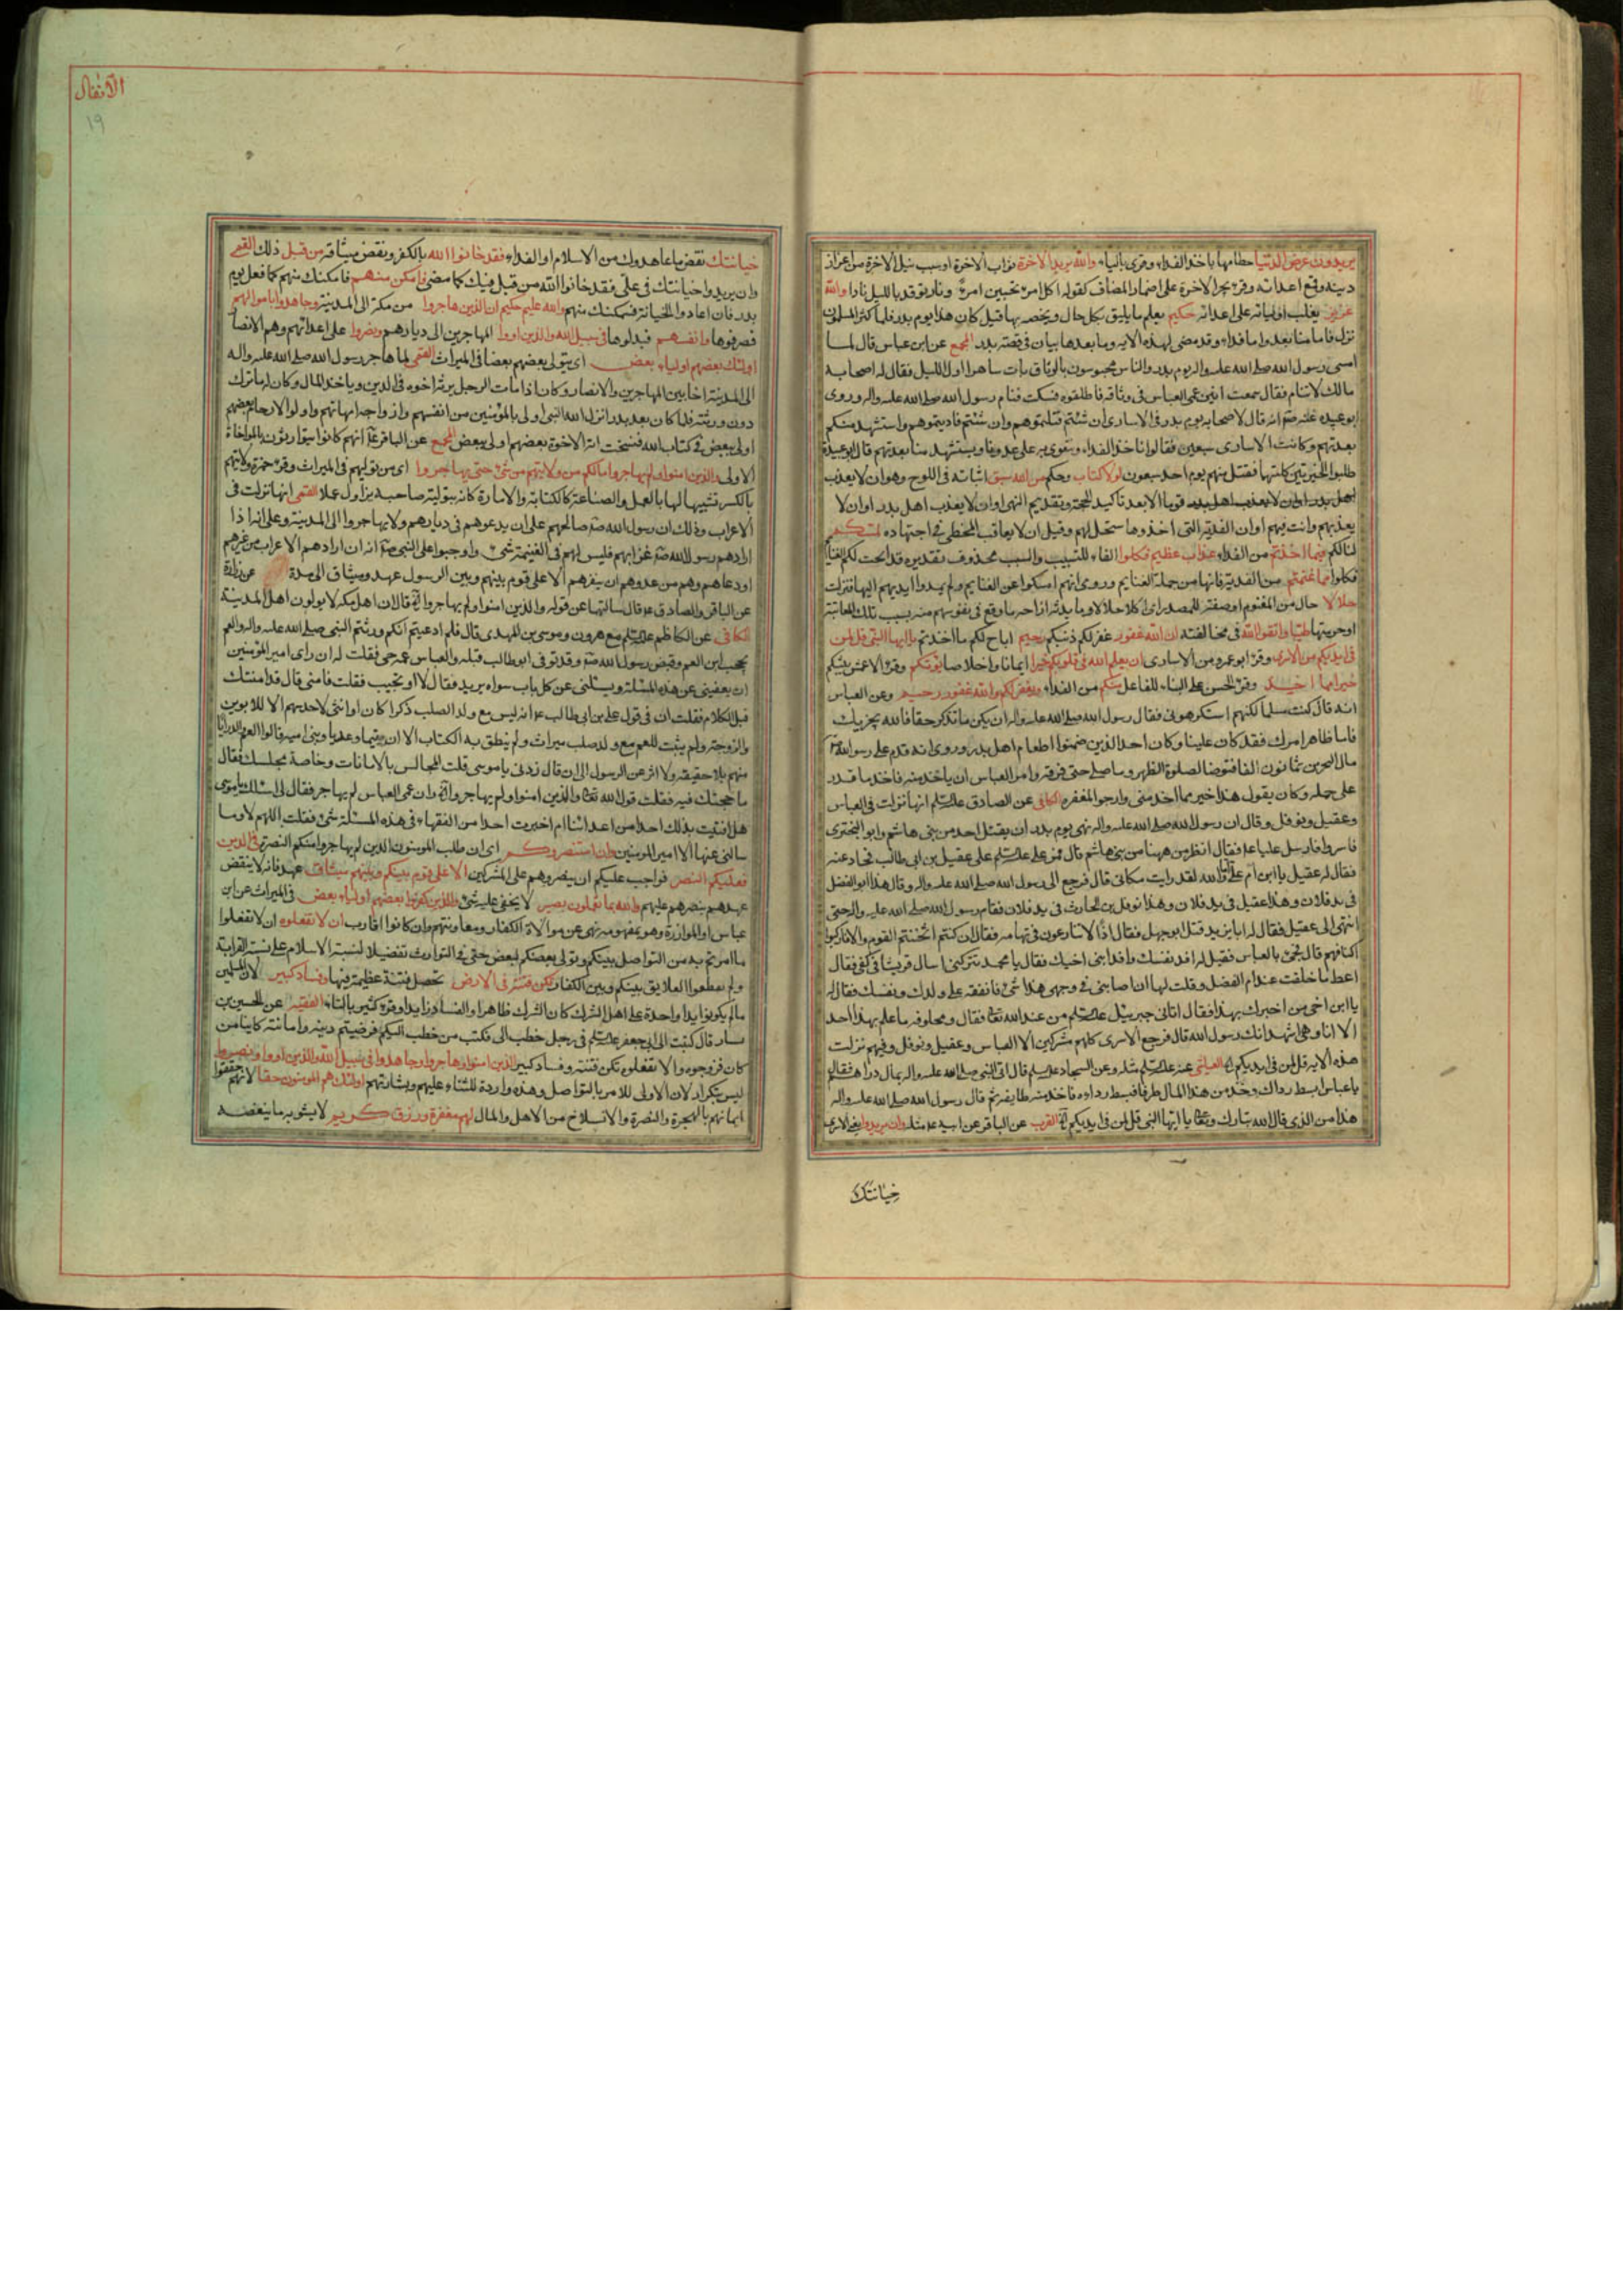 يريدون عرض الدنيا حطامها باخذ الفداء وقرئ بالياء والله يريد الاخرة ثواب الاخرة او سبب نيل الاخرة من اعزاز
دينه وقمع اعدائه وقرئ بجر الاخرة على اضمار المضاف كقوله اكل امرئ تحسبين امرءً ونار توقد بالليل نارا والله
عزيز يغلب اوليائه على اعدائه حكيم يعلم ما يليق بكل حال ويخصه بها قيل كان هذا يوم بدر فلما كثر المسلمون
نزل فاما منا بعد واما فداء وقد مضى لهذه الاية وما بعدها بيان في قصة بدر المجمع عن ابن عباس قال لما
امسى رسول الله صلى الله عليه واله يوم بدر والناس محبوسون بالوثاق بات ساهرا اول الليل فقال له اصحابه
مالك لا تنام فقال سمعت انين عمى العباس في وثاقه فاطلقوه فسكت فنام رسول الله صلى الله عليه واله وروى
ابو عبيده عنه صم انه قال لاصحابه يوم بدر في الاسارى ان شئتم قتلتموهم وان شئتم فاديتموهم واستشهد منكم
بعدتهم وكانت الاسارى سبعين فقالوا ناخذ الفداء ونتقوى به على عدونا ويستشهد منا بعدتهم قال ابو عبيدة
طلبوا الخيرتين كلتيهما فقتل منهم يوم احد سبعون لولا كتاب وحكم من الله سبق اثباته في اللوح وهو ان لا يعذب
قوما الا بعد تاكيد الحجة وتقديم النهى او ان لا يعذب اهل بدر او ان لا
يعذبهم وانت فيهم او ان الفدية التى اخذوها ستحل لهم وقيل ان لا يعاقب المخطى في اجتهاده لمسكم
لنالكم فيما اخذتم من الفداء عذاب عظيم فكلوا الفاء للتسبيب والسبب محذوف تقديره قد ابحت لكم الغنايم
فكلوا مما غنمتم من الفدية فانها من جملة الغنايم وروى انهم امسكوا عن الغنايم ولم يمدوا ايديهم اليها فنزلت
حلالا حال من المغنوم او صفة للمصدر اى اكلا حلالا وفايدته ازاحة ما وقع في نفوسهم منه بسبب تلك المعاتبة
او حرمتها طيبا واتقوا الله في مخالفته ان الله غفور غفر لكم ذنبكم رحيم اباح لكم ما اخذتم يا ايها النبى قل لمن
في ايديكم من الاسرى وقرئ ابو عمرو من الاسارى ان يعلم الله في قلوبكم خيرا ايمانا واخلاصا يؤتكم وقرئ الاعمش يثبكم
خيرا مما اخذ وقرئ الحسن على البناء للفاعل منكم من الفداء ويغفر لكم والله غفور رحيم وعن العباس
انه قال كنت مسلما لكنهم استكرهونى فقال رسول الله صلى الله عليه واله ان يكن ما تذكر حقا فالله يجزيك
فاما ظاهر امرك فقد كان علينا وكان احد الذين ضمنوا اطعام اهل بدر وروى انه قدم على رسول الله صم
مال البحرين ثمانون الفا فتوضا لصلوة الظهر وما صلى حتى فرقه وامر العباس ان ياخذ منه فاخذ ما قدر
على حمله وكان يقول هذا خير مما اخذ منى وارجو المغفرة الكافى عن الصادق عليه السلم انها نزلت في العباس
وعقيل ونوفل وقال ان رسول الله صلى الله عليه واله نهى يوم بدر ان يقتل احد من بنى هاشم وابو البخترى
فاسروا فارسل عليا ع فقال انظر من ههنا من بنى هاشم قال فمر على عليه السلم على عقيل بن ابى طالب فحاد عنه
فقال له عقيل يا ابن ام على اما والله لقد رايت مكانى قال فرجع الى رسول الله صلى الله عليه واله وقال هذا ابو الفضل
في يد فلان وهذا عقيل في يد فلان وهذا نوفل بن الحارث في يد فلان فقام رسول الله صلى الله عليه واله حتى
انتهى الى عقيل فقال له ابا يزيد قتل ابو جهل فقال اذا لا تنازعون في تهامه فقال ان كنتم اثخنتم القوم والا فاركبوا
اكتافهم قال فجئ بالعباس فقيل له افد نفسك وافد ابنى اخيك فقال يا محمد تتركنى اسال قريشا في كفى فقال
اعط ما خلفت عند ام الفضل وقلت لها ان اصابنى في وجهى هذا شئ فانفقه على ولدك ونفسك فقال له
يا ابن اخى من اخبرك بهذا فقال اتانى جبرئيل عليه السلم من عند الله تعالى فقال ومحلوفه ما علم بهذا احد
الا انا وهى اشهد انك رسول الله قال فرجع الاسرى كلهم مشركين الا العباس وعقيل ونوفل وفيهم نزلت
هذه الاية قل لمن في ايديكم العياشى عنه عليه السلم مثله وعن السجاد عليه السلم قال اتى النبى صلى الله عليه واله بمال دراهم فقال
يا عباس ابسط رداك وخذ من هذا المال طرفا فبسط رداءه فاخذ منه طايفة ثم قال رسول الله صلى الله عليه واله
هذا من الذى قال الله تبارك وتعالى يا ايها النبى قل لمن في ايديكم القرب عن الباقر عن ابيه ع مثله وان يريدوا يعنى الاسرى
خيانتك
الانفال
١٩
خيانتك نقض ما عاهدوك من الاسلام او الفداء فقد خانوا الله بالكفر ونقض ميثاقه من قبل ذلك القمى
وان يريدوا خيانتك في على فقد خانوا الله من قبل فيك كما مضى فامكن منهم فامكنك منهم كما فعل يوم
بدر فان اعادوا الخيانة فسيمكنك منهم والله عليم حكيم ان الذين هاجروا من مكة الى المدينة وجاهدوا باموالهم
فصرفوها وانفسهم فبذلوها في سبيل الله والذين اووا المهاجرين الى ديارهم ونصروا على اعدائهم وهم الانصار
اولئك بعضهم اولياء بعض اى يتولى بعضهم بعضا في الميراث القمى لما هاجر رسول الله صلى الله عليه واله
الى المدينة اخا بين المهاجرين والانصار وكان اذا مات الرجل يرثه اخوه في الدين وياخذ المال وكان له ما ترك
دون ورثته فلما كان بعد بدر انزل الله النبى اولى بالمؤمنين من انفسهم وازواجه امهاتهم واولوا الارحام بعضهم
اولى ببعض في كتاب الله فنسخت اية الاخوة بعضهم اولى ببعض المجمع عن الباقر ع انهم كانوا يتوارثون بالمواخاة
الاولى والذين امنوا ولم يهاجروا مالكم من ولايتهم من شئ حتى يهاجروا اى من توليهم في الميراث وقرئ حمزة ولايتهم
بالكسر تشبيها لها بالعمل والصناعة كالكتابة والامارة كانه بتوليته صاحبه يزاول عملا القمى انها نزلت في
الاعراب وذلك ان رسول الله صم صالحهم على ان يدعوهم في ديارهم ولا يهاجروا الى المدينة وعلى انه اذا
ارادهم رسول الله صم غزا بهم فليس لهم في الغنيمة شئ واوجبوا على النبى صم انه ان ارادهم الاعراب من غيرهم
او دعاهم دهم من عدوهم ان ينصرهم الا على قوم بينهم وبين الرسول عهد وميثاق الى مدة عن زرارة
عن الباقر والصادق ع قال سالتهما عن قوله والذين امنوا ولم يهاجروا قالا ان اهل مكة لا يولون اهل المدينة
الكافى عن الكاظم عليه السلم مع هرون وموسى بن المهدى قال فلم ادعيتم انكم ورثتم النبى صلى الله عليه واله والعم
يحجب ابن العم وقبض رسول الله صم وقد توفى ابو طالب قبله والعباس عمه حى فقلت له ان راى امير المؤمنين
ان يعفينى عن هذه المسئلة ويسئلنى عن كل باب سواه يريد فقال لا او تجيب فقلت فامنى قال قد امنتك
قبل الكلام فقلت ان في قول على بن ابى طالب ع انه ليس مع ولد الصلب ذكرا كان او انثى لاحد سهم الا للابوين
والزوجة ولم يثبت للعم مع ولد صلب ميراث ولم ينطق به الكتاب الا ان تيما وعديا وبنى امية قالوا العم والد رايا
منهم بلا حقيقة ولا اثر عن الرسول الى ان قال زدنى يا موسى قلت المجالس بالامانات وخاصة مجلسك فقال
ما حجتك فيه فقلت قول الله تعالى والذين امنوا ولم يهاجروا وان عمى العباس لم يهاجر فقال لى اسئلك يا موسى
هل افتيت بذلك احدا من اعدائنا ام اخبرت احدا من الفقهاء في هذه المسئلة شئ فقلت اللهم لا وما
سالنى عنها الا امير المؤمنين وان استنصروكم اى ان طلب المومنون الذين لم يهاجروا منكم النصرة في الدين
فعليكم النصر فواجب عليكم ان ينصروهم على المشركين الا على قوم بينكم وبينهم ميثاق عهد فانه لا ينقض
عهدهم بنصرهم عليهم والله بما تعملون بصير لا يخفى عليه شئ والذين كفروا بعضهم اولياء بعض في الميراث عن ابن
عباس او الموازرة وهو بمفهومه نهى عن موالاة الكفار ومعاونتهم وان كانوا اقارب ان لا تفعلوه ان لا تفعلوا
ما امرتم به من التواصل بينكم وتولى بعضكم لبعض حتى في التوارث تفضيلا لنسبة الاسلام على نسبة القرابة
ولم تقطعوا العلايق بينكم وبين الكفار تكن فتنة في الارض تحصل فتنة عظيمة فيها وفساد كبير لان المسلمين
ما لم يكونوا يدا واحدة على اهل الشرك كان الشرك ظاهرا والفساد زايدا وقرئ كثير بالثاء الفقيه عن الحسين بن
بشار قال كتبت الى ابى جعفر عليه السلم في رجل خطب الى فكتب من خطب اليكم فرضيتم دينه وامانته كاينا من
كان فزوجوه والا تفعلوه تكن فتنة وفساد كبير والذين امنوا وهاجروا وجاهدوا في سبيل الله والذين اووا ونصروا
ليس بتكرار لان الاولى للامر بالتواصل وهذه واردة للثناء عليهم وبشارتهم اولئك هم المومنون حقا لانهم حققوا
ايمانهم بالهجرة والنصرة والانسلاخ من الاهل والمال لهم مغفرة ورزق كريم لا يشوبه ما ينغصه